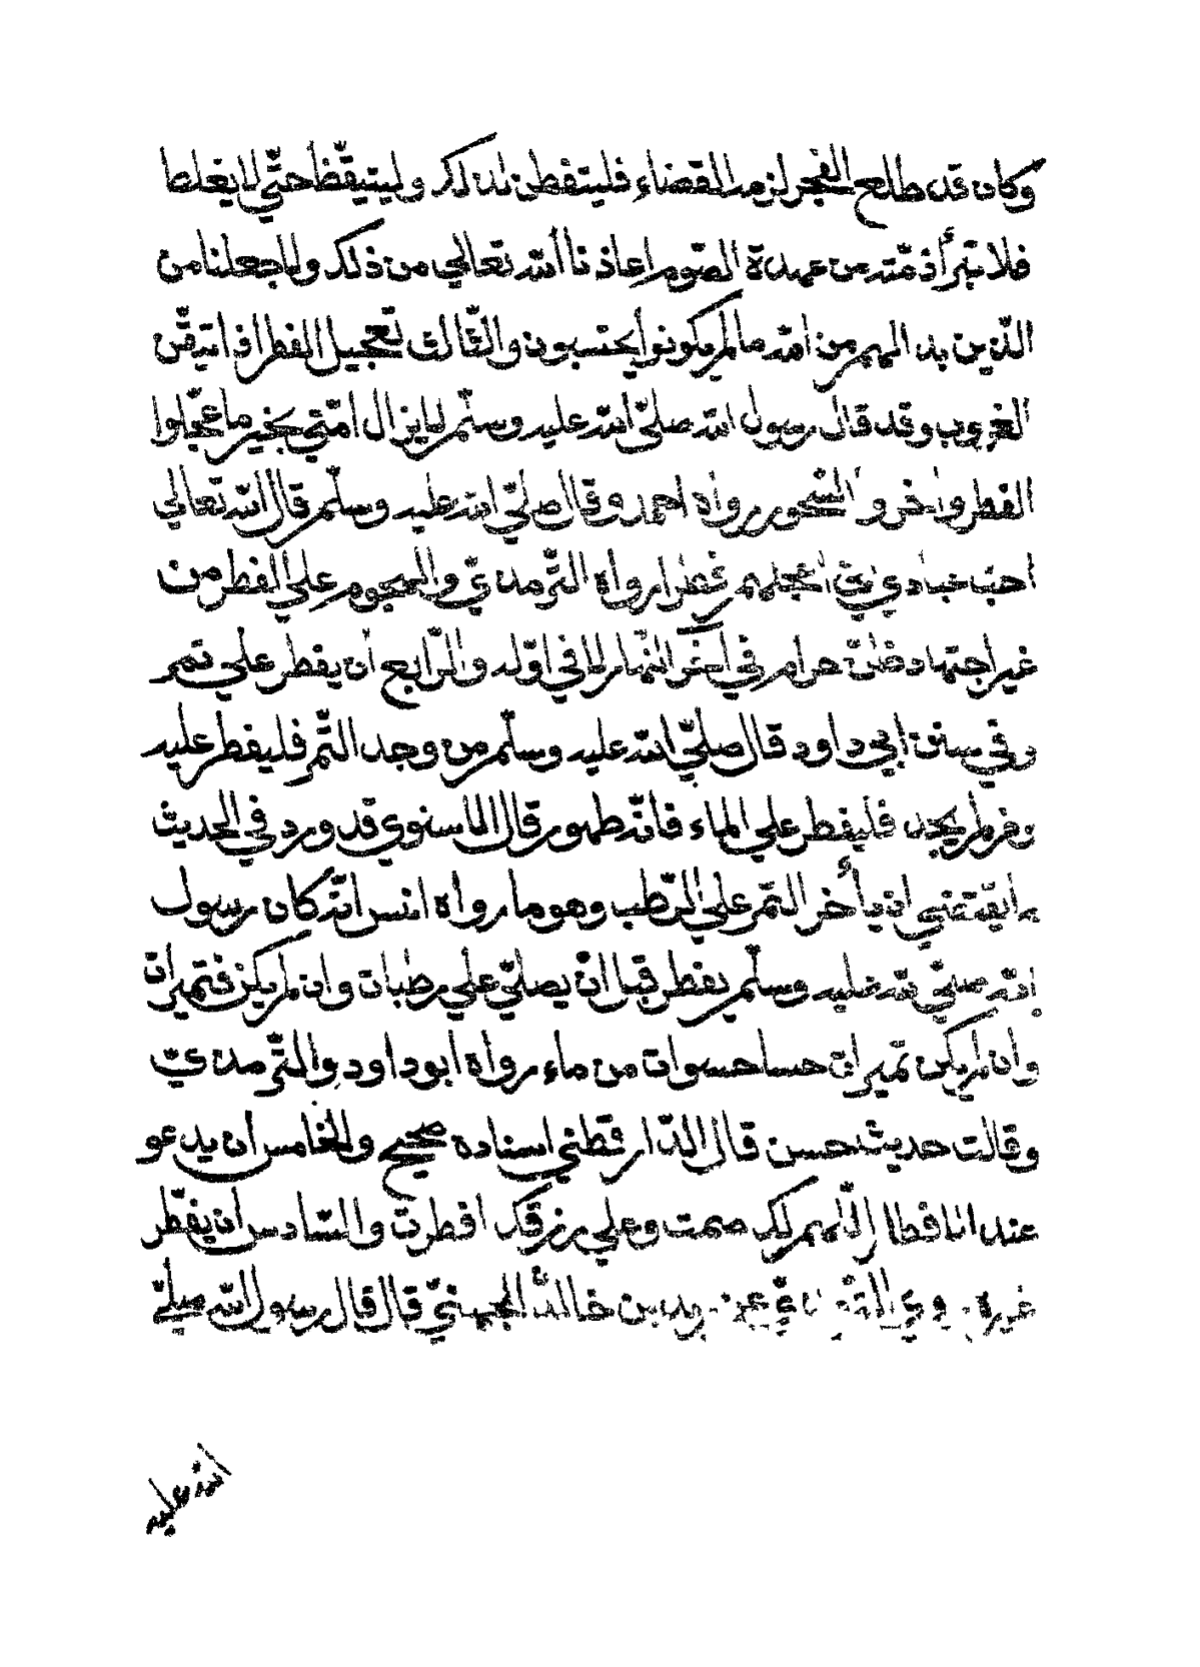 وكان قد طلع الفجر لزمه القضاء فليتفطن لذلك وليتيقّظ حتّي لا يغلط
فلا تبرأ ذمّته من عهدة الصّوم اعاذنا الله تعالي من ذلك ولا جعلنا من
الّذين بدا لهم من الله مالم يكونوا يحتسبون والثّالث تعجيل الفطر اذا تيقّن
الغروب وقد قال رسول الله صلّي الله عليه وسلّم لا يزال امّتي بخير ما عجّلوا
الفطر واخروا السّحور رواه احمد وقال صلّي الله عليه وسلّم قال الله تعالي
احبّ عبادي اليّ اعجلهم فطرا رواه التّرمذيّ والهجوم علي الفطر من
غير اجتهاد ظنّ حرام في آخر النّهار لا في اوّله والرّابع أن يفطر علي تمر
وفي سنن ابي داود قال صلّي الله عليه وسلّم من وجد التّمر فليفطر عليه
ومن لم يجد فليفطر علي الماء فانّه طهور قال الاسنوي قد ورد في الحديث
ما يقتضي ان يأخر التّمر علي الرّطب وهو ما رواه انس انّه كان رسول
الله صلّي الله عليه وسلّم يفطر قبل انْ يصلّي علي رطبات وان لم يكن فتميرات
وان لم يكن تميرات حسا حسوات من ماء رواه ابو داود والتّرمذيّ
وقالت حديث حسن قال الدّارقطني اسناده صحيح والخامس أن يدعو
عند الافطار الّلهم لك صمت وعلي رزقك افطرت والسّادس أن يفطّر
غيره بن خالد الجهنيّ قال قال رسول الله صلّي
الله عليه